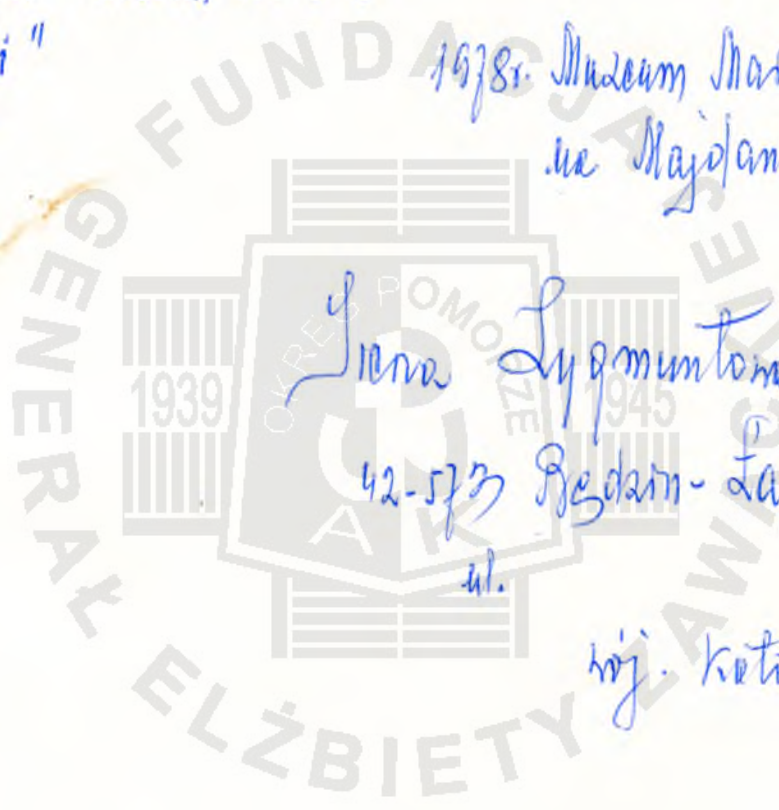 "
1978r. Muzeum
na Majdan
Irena Zygmuntow
42-573 Będzin-Ła
ul.
woj. Kat
FUNDACJA GENERAŁ ELŻBIETY ZAWAC
OKRĘG POMORZE
1939
1945
AK